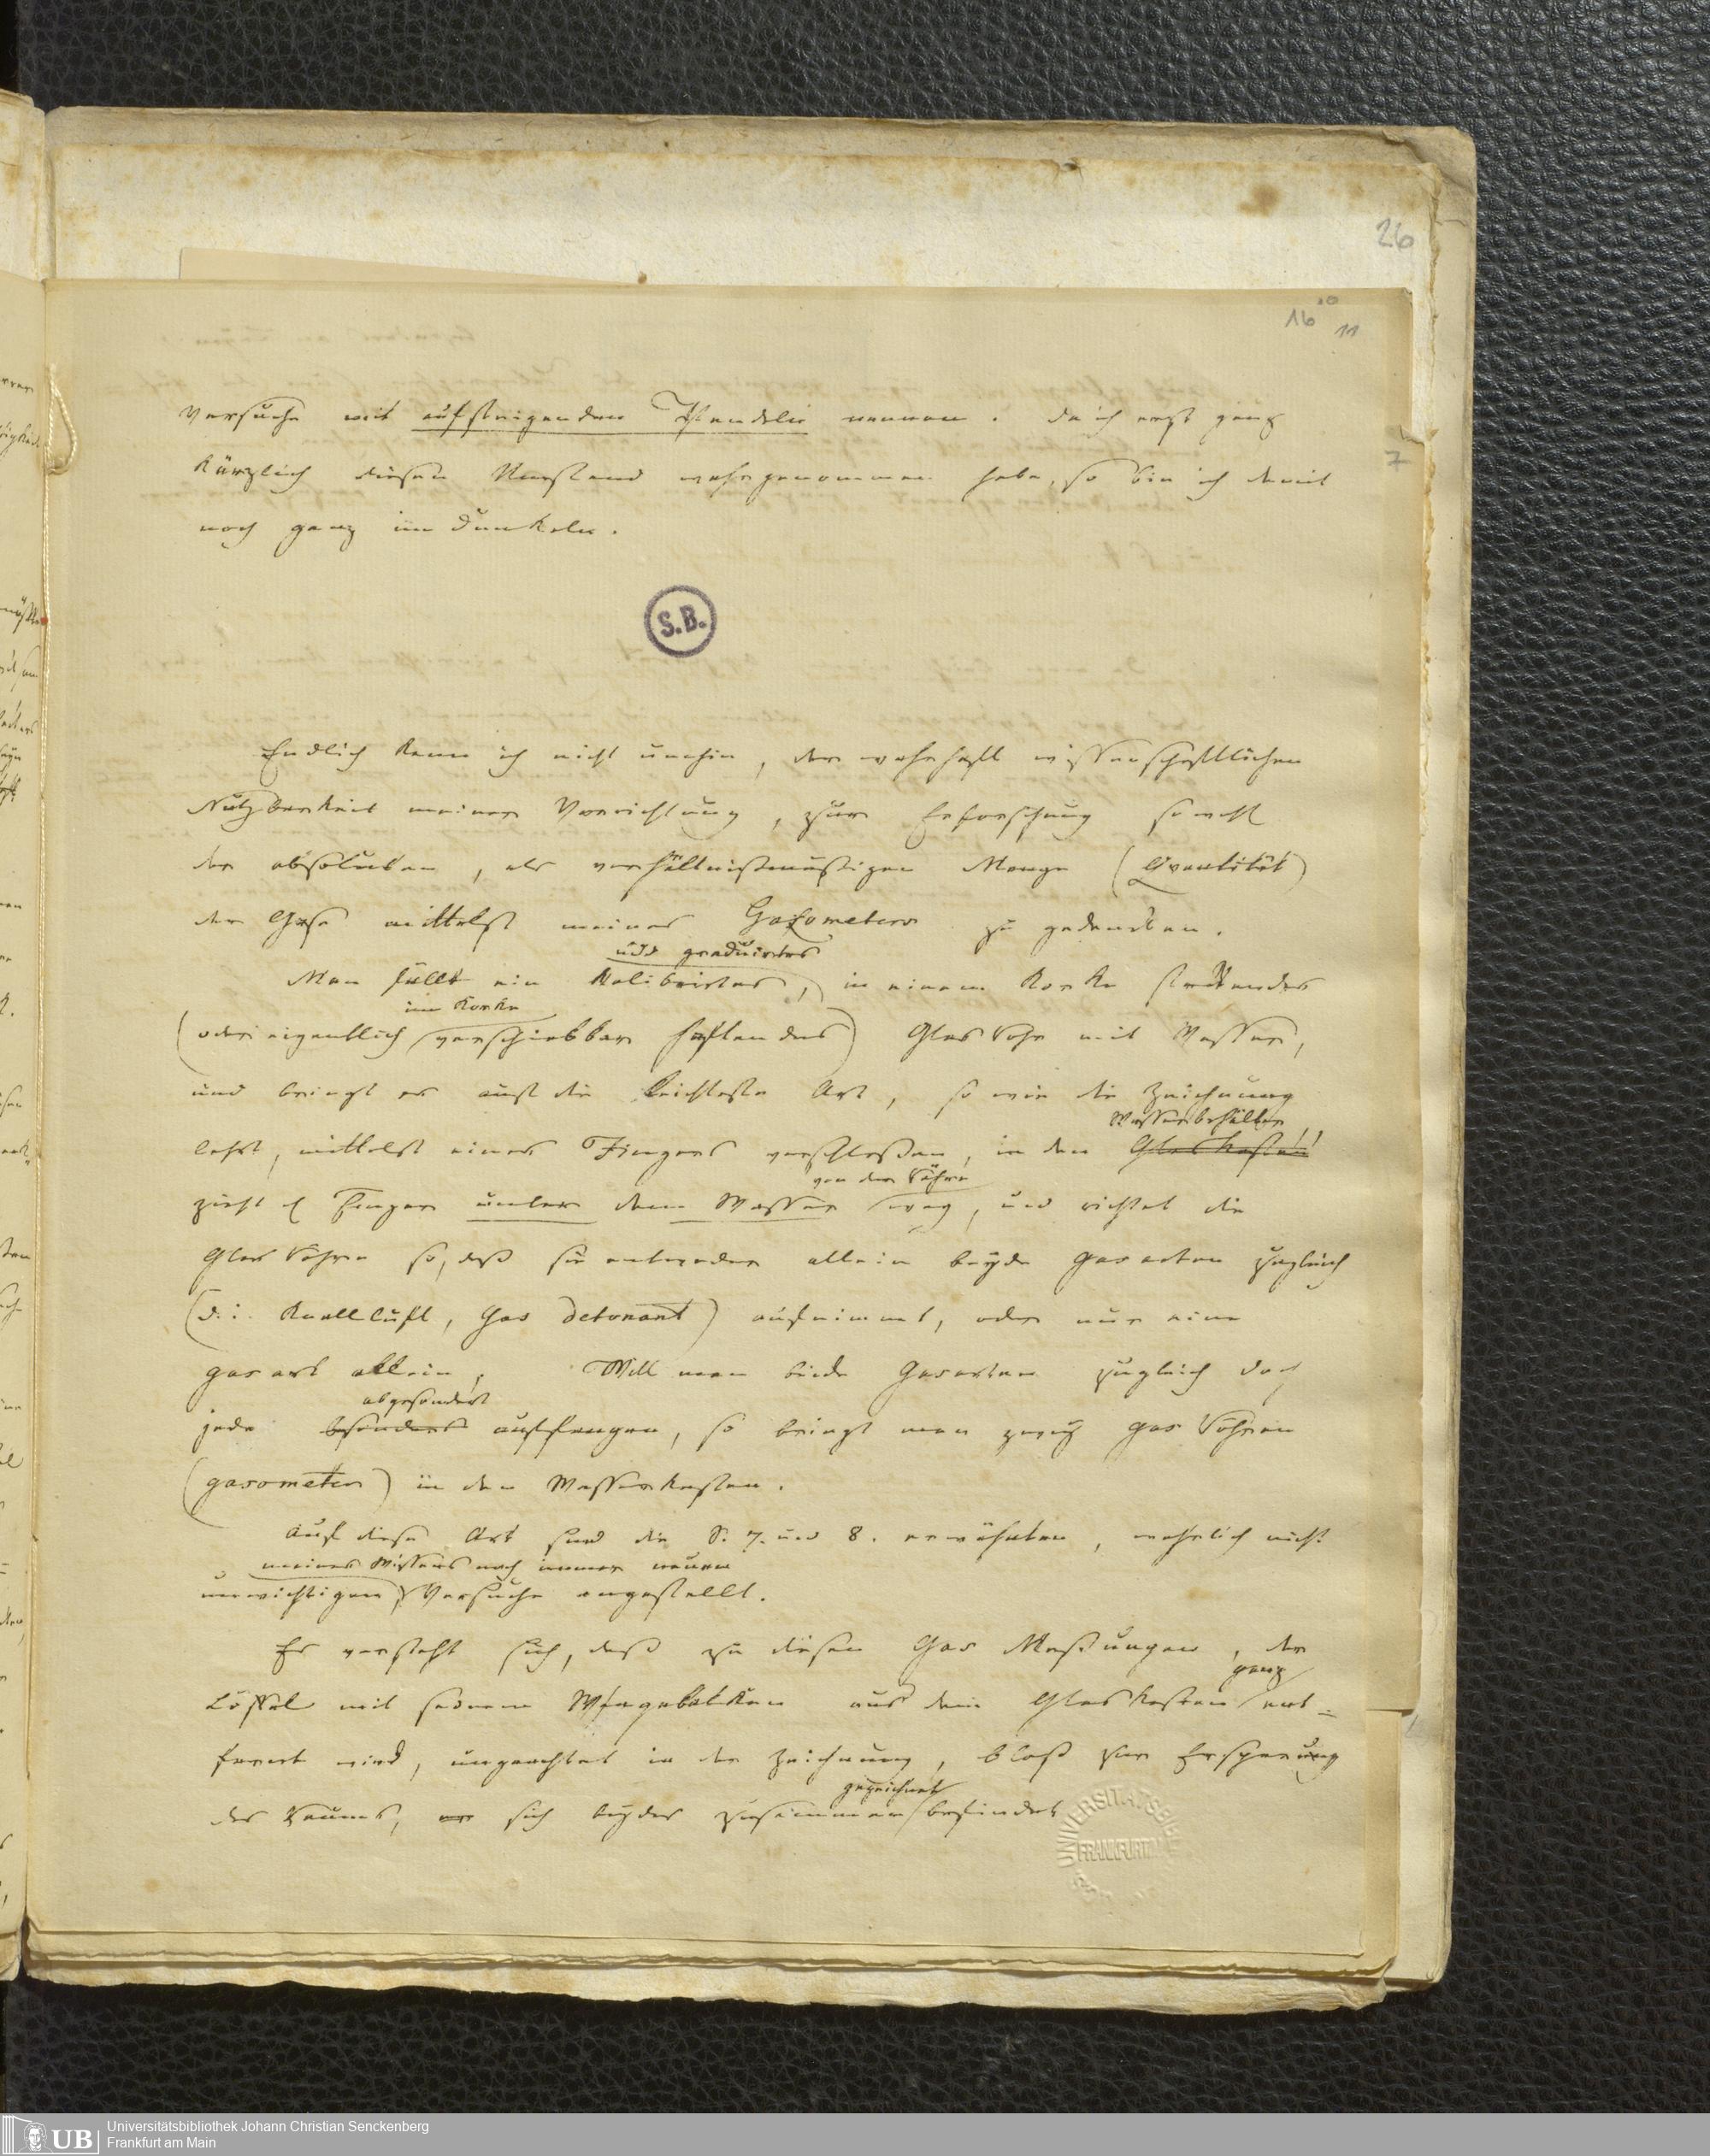 26
16 10 11
Versuche mit aufsteigenden Pendeln nennen. Da ich erst ganz
7
kürzlich diesen Umstand wahrgenommen habe, so bin ich damit
noch ganz im Dunkeln.
S.B.
Endlich kann ich nicht umhin, der wahrhaft wissenschaftlichen
Nutzbarkeit meiner Vorrichtung, zur Erforschung sowohl
der absoluten, als verhältnißmäßigen Menge (Quantität)
der Gase mittelst meines Gasometers zu gedenken.
und graduirtes
Man füllt ein kalibrirtes, in einem Korke steckendes
im Korke
(oder eigentlich verschiebbar haftendes) Glas Rohr mit Wasser,
und bringt es auf die leichteste Art, so wie die Zeichnung
Wasserbehälter,
lehrt, mittelst eines Fingers verschloßen, in den Glaskasten,
von der Röhre
zieht d Finger unter dem Wasser weg, und richtet die
Glas Röhre so, daß sie entweder allein beyde Gasarten zugleich
(d. i. Knallluft, Gas detonant) aufnimmt, oder nur eine
gasart allein, Will man beide Gasarten zugleich doch
abgesondert
jede besonders auffangen, so bringt man zwey Gas Röhren
(gasometer) in den Wasserkasten.
Auf diese Art sind die S. 7. und 8. erwähnten, wahrlich nicht
meines Wissens noch immer neuen
unwichtigen, Versuche angestellt.
Es versteht sich, daß zu diesen Gas Meßungen, der
ganz
Löffel mit seinem Wagebalken aus dem Glaskasten ent-
fernt wird, ungeachtet in der Zeichnung, bloß zur Ersparung
gezeichnet
des Raums, sich beydes zusammen befindet
UNIVERSITÄTSBIBL
FRANKFURT
UB
Universitätsbibliothek Johann Christian Senckenberg
Frankfurt am Main